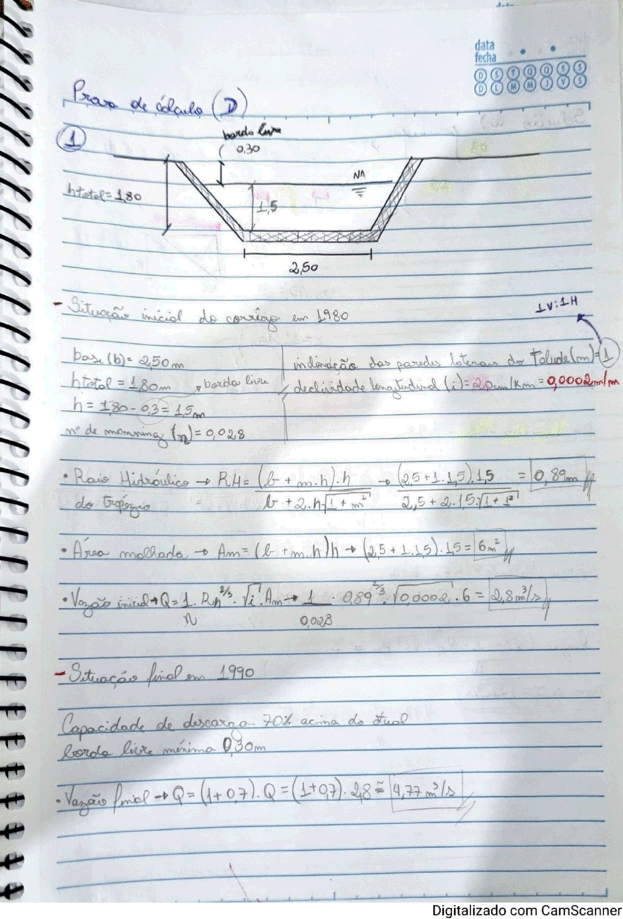 data
fecha
D S T Q Q S S
D L M M J V S
Prova de cálculo (D)
1
borda livre
0.30
NA
htotal = 1.80
1,5
2,50
- Situação inicial do corrêgo em 1980
1V:1H
base (b) = 2,50m
inclinação das paredes laterais do Talude (m) = 1
htotal = 1.80m
borda livre
declividade longitudinal (i) = 20cm/km = 0,0002m/m
h = 1.80 - 0.3 = 1.5m
nº de manning (n) = 0,028
• Raio Hidráulico → RH = (b + m.h).h / b + 2.h√1 + m² → (2,5+1.1,5).1,5 / 2,5 + 2.1,5.√1 + 1² = 0,89m
do trapézio
• Área molhada → Am = (b + m.h)h → (2,5 + 1.1,5).1,5 = 6m²
• Vazão inicial → Q = 1/n . Rh^2/3 . √i . Am → 1/0,028 . 0,89^2/3 . √0,0002 . 6 = 2,8m³/s
- Situação final em 1990
Capacidade de descarga 70% acima do atual
borda livre mínima 0,30m
• Vazão final → Q = (1+0,7).Q = (1+0,7).2,8 ≅ 4,77m³/s
Digitalizado com CamScanner